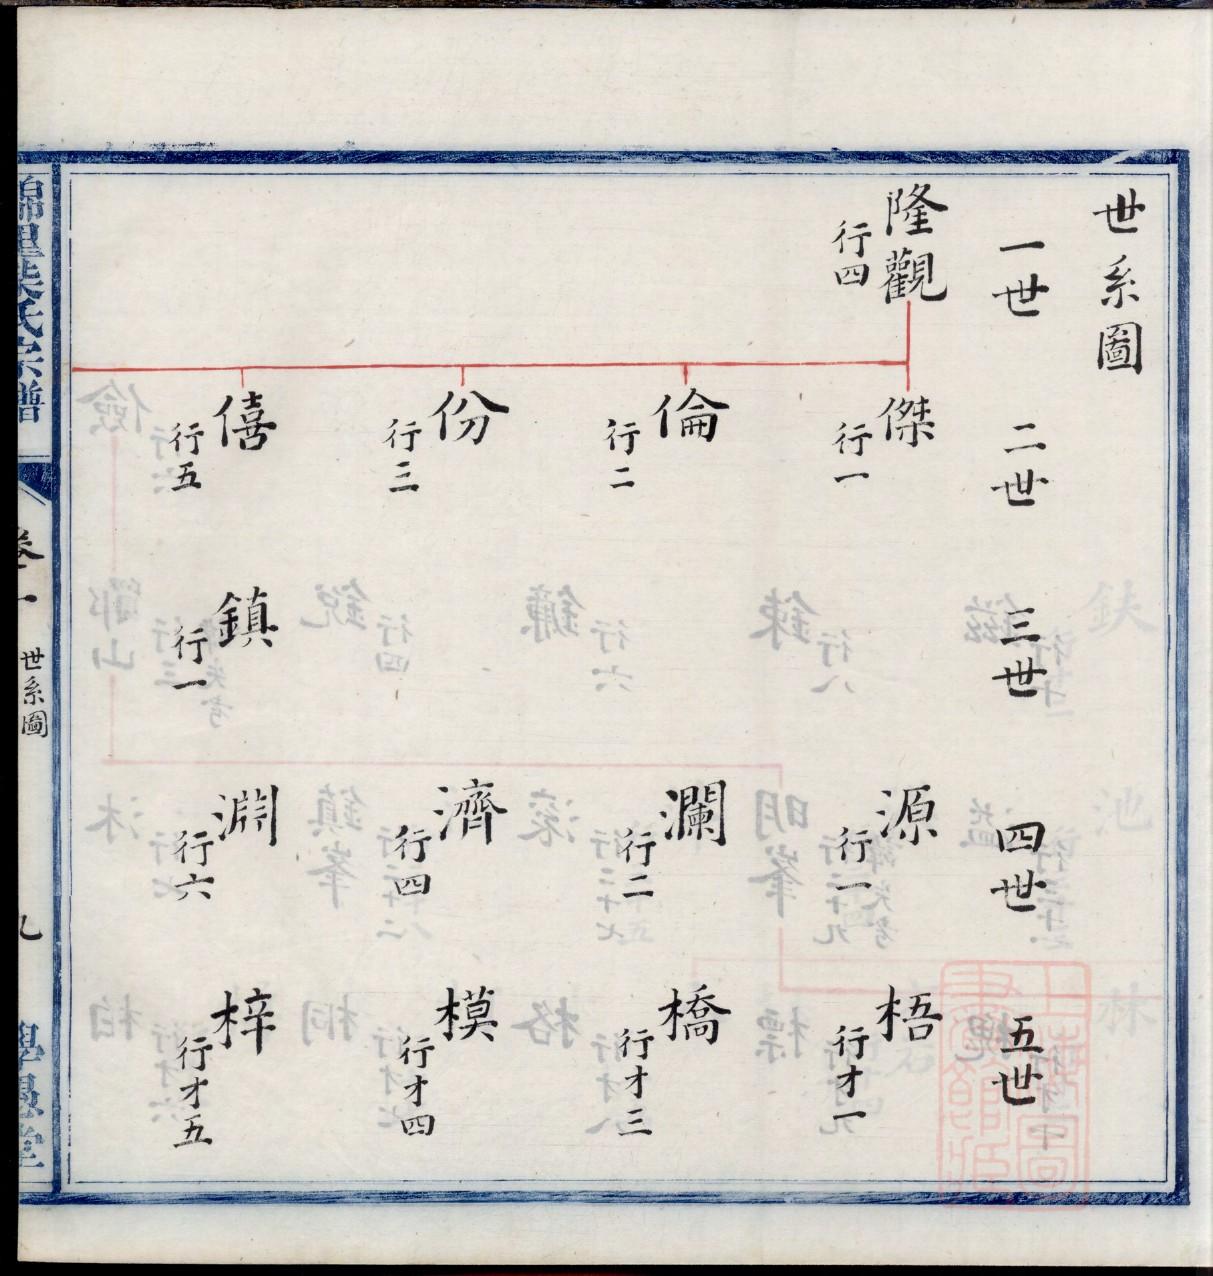 世系圖
一世
二世
三世
四世
五世
隆觀
行四
傑
行一
源
行一
梧
行才一
倫
行二
瀾
行二
橋
行才三
份
行三
濟
行四
模
行才四
僖
行五
鎮
行一
淵
行六
梓
行才五
氏宗譜
卷一
世系圖
九